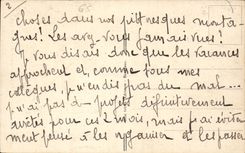 2
choses dans nos pittoresques monta-
gnes! Les avez-vous jamais vues!
Je vous disais donc que les vacances
approchent et, comme tous mes
collègues, je n'en dis pas du mal...
je n'ai pas de projets définitivement
arrêtés pour ces 2 mois, mais j'ai évité
ment pensé à les organiser et les passer